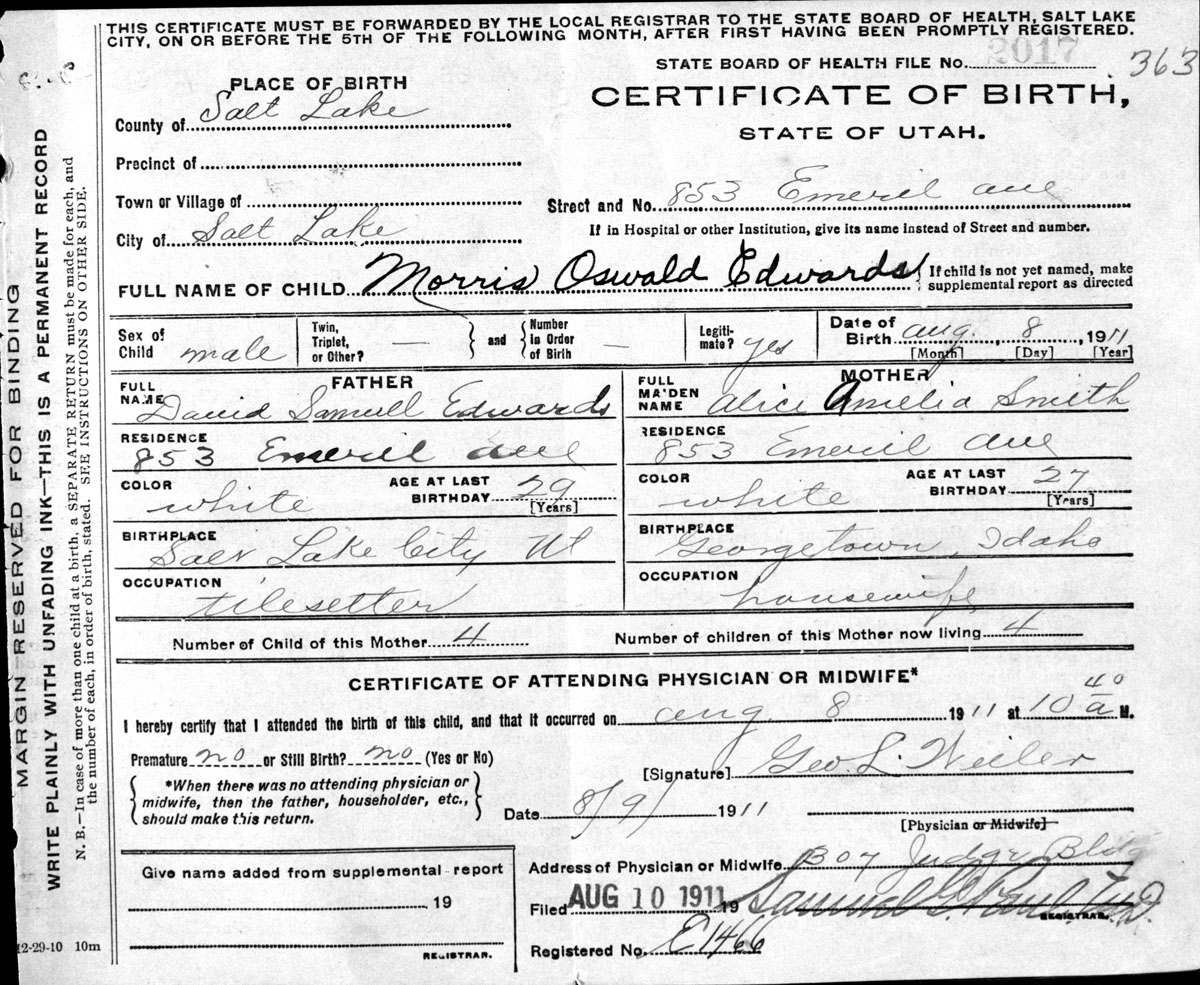 THIS CERTIFICATE MUST BE FORWARDED BY THE LOCAL REGISTRAR TO THE STATE BOARD OF HEALTH, SALT LAKE
CITY, ON OR BEFORE THE 5TH OF THE FOLLOWING MONTH, AFTER FIRST HAVING BEEN PROMPTLY REGISTERED.
STATE BOARD OF HEALTH FILE No. 2017 363
PLACE OF BIRTH
CERTIFICATE OF BIRTH,
STATE OF UTAH.
County of Salt Lake
Precinct of
Town or Village of
Street and No. 853 Emeril ave
City of Salt Lake
If in Hospital or other Institution, give its name instead of Street and number.
FULL NAME OF CHILD Morris Oswald Edwards { If child is not yet named, make supplemental report as directed
Sex of Child male Twin, Triplet, or Other? — } and { Number in Order of Birth — Legiti-mate? yes Date of Birth aug. 8, 1911
[Month] [Day] [Year]
FATHER
MOTHER
FULL NAME David Samuel Edwards
FULL MAIDEN NAME Alice Amelia Smith
RESIDENCE 853 Emeril ave
RESIDENCE 853 Emeril ave
COLOR white AGE AT LAST BIRTHDAY 29 [Years]
COLOR white AGE AT LAST BIRTHDAY 27 [Years]
BIRTHPLACE Salt Lake City Ut
BIRTHPLACE Georgetown, Idaho
OCCUPATION tilesetter
OCCUPATION housewife
Number of Child of this Mother 4 Number of children of this Mother now living 4
CERTIFICATE OF ATTENDING PHYSICIAN OR MIDWIFE*
I hereby certify that I attended the birth of this child, and that it occurred on aug 8 1911 at 10 40 a M.
Premature no or Still Birth? no (Yes or No)
[Signature] Geo. L. Weiler
*When there was no attending physician or
midwife, then the father, householder, etc.,
should make this return.
Date 8/9/ 1911
[Physician or Midwife]
Address of Physician or Midwife 307 Judge Bldg
Give name added from supplemental report
19
REGISTRAR.
Filed AUG 10 1911 19 Samuel G. Paul
REGISTRAR.
Registered No. E1466
12-29-10 10m
MARGIN RESERVED FOR BINDING
WRITE PLAINLY WITH UNFADING INK—THIS IS A PERMANENT RECORD
N. B.—In case of more than one child at a birth, a SEPARATE RETURN must be made for each, and
the number of each, in order of birth, stated. SEE INSTRUCTIONS ON OTHER SIDE.